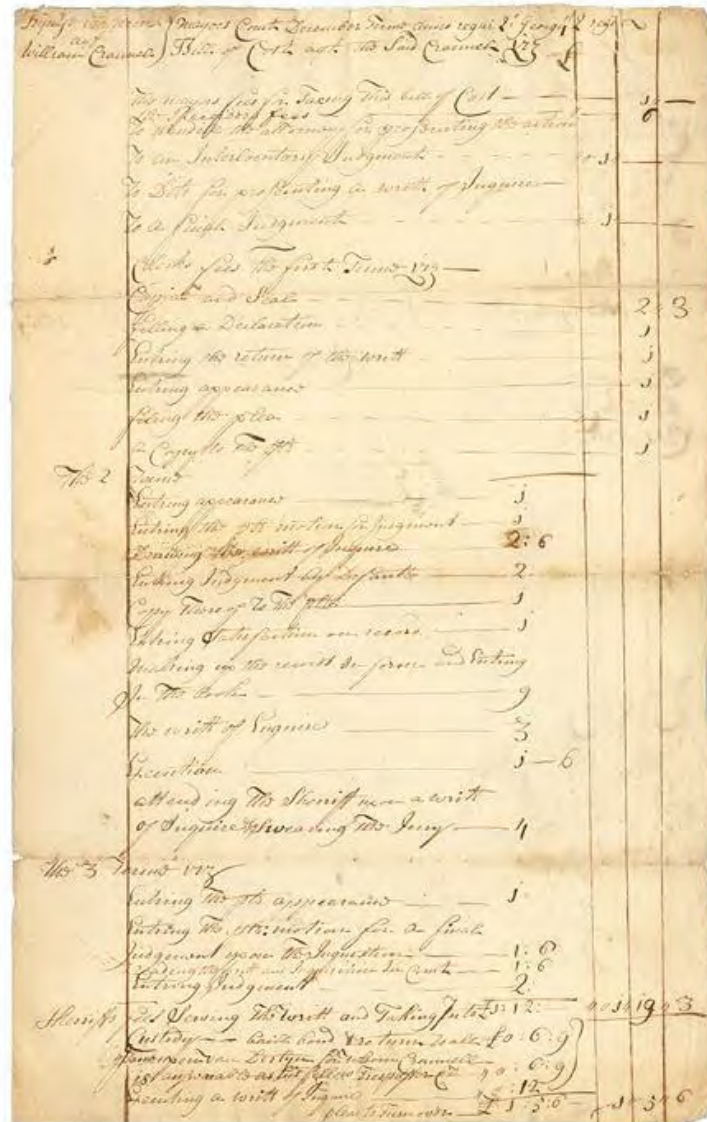 Mayors Court December Terme Anno regni Georg
agt
William Crannel Bill of Cost agt the Said Crannel viz £
The mayors fees for Taxing This bill of Cost — 1 —
6
To the attorney for prosecuting the action
To an Interlocutory Judgment - 1 -
To Ditto for prosecuting a writt of Inquire
To a finall Judgment - 1 -
Clerks fees The first Terme viz
and Seal 2 : 3
filling a Declaration 1
Entring the return of the writt 1
Entring appearance 1
filing the plea 1
a Copy to the 1
The 2 Terme
Entring appearance 1
Entring The motion for Judgment 1
Drawing the writt of Inquire 2 : 6
Entring Judgment by Default 2
Copy Thereof To The 1
Entring Satisfaction on record 1
making up the record In forme and Entring
In The book 9
The writt of Enquire 3
Execution 1 - 6
attending The Sherriff upon a writt
of Inquire & Swearing The Jury 4
The 3 Terme viz
Entring The appearance 1
Entring The motion for a final
Judgement upon The Inquisition 1 : 6
and Inquisition In Court 1 : 6
Entring Judgment 2
Sherriffs fees Serving The writt and Taking Into £1 : 12 : 1 19 3
Custody — baile bond & return £0 : 6 : 9
van for whom Crannel
is answerable as his fellow 0 : 6 : 9
Executing a writt of Inquire : 12
please to Turn over £1 : 5 : 6 1 5 6